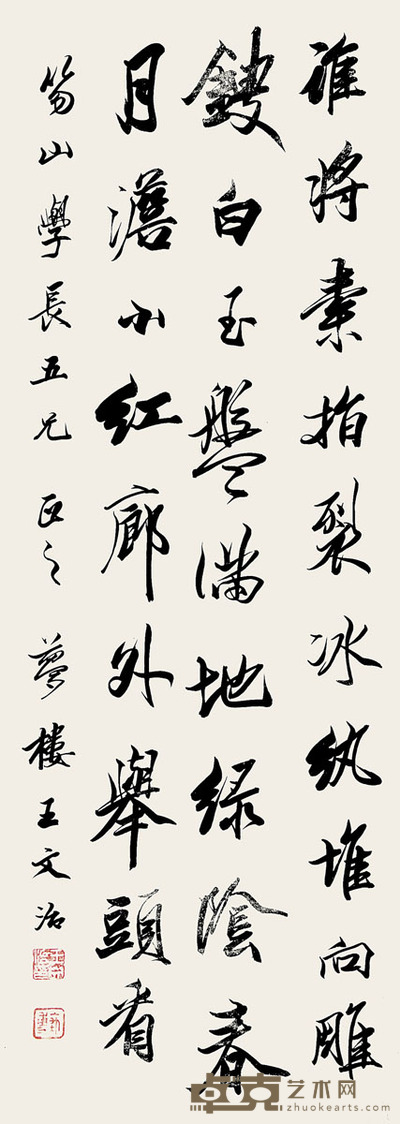 誰將素指裂冰紈堆向雕
鎪白玉盤滿地綠陰春
月澹小紅廊外舉頭看
笏山學長五兄 正之 夢樓王文治
卓克艺术网
zhuokearts.com